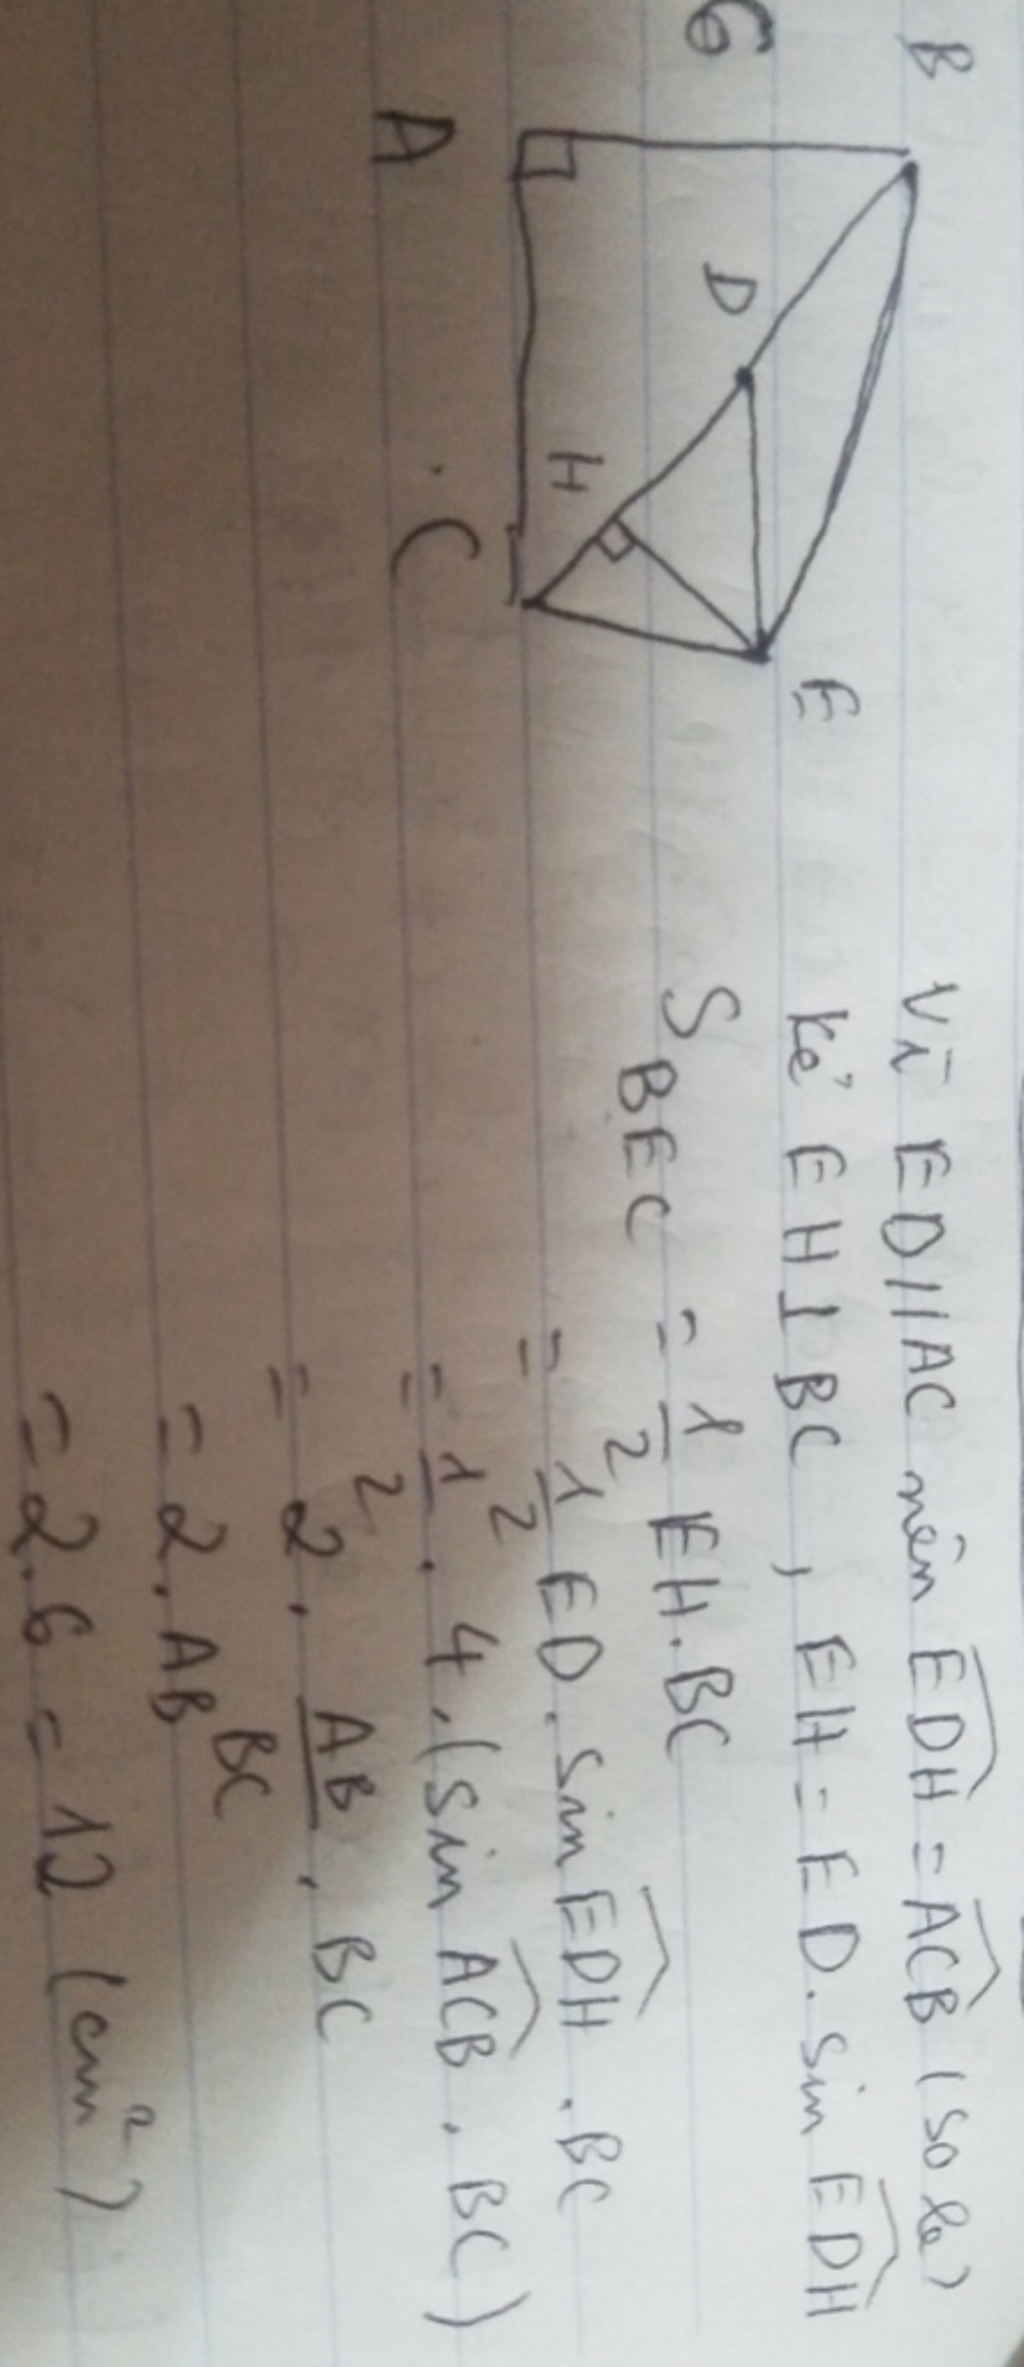 B
6
A
D
H
C
E
Vì ED//AC nên EDH = ACB (so le)
Kẻ EH ⊥ BC, EH = ED. Sin EDH
S BEC = 1/2 EH.BC
= 1/2 ED. Sin EDH . BC
= 1/2 . 4. (Sin ACB . BC)
= 2. AB/BC . BC
= 2. AB
= 2.6 = 12 (cm²)